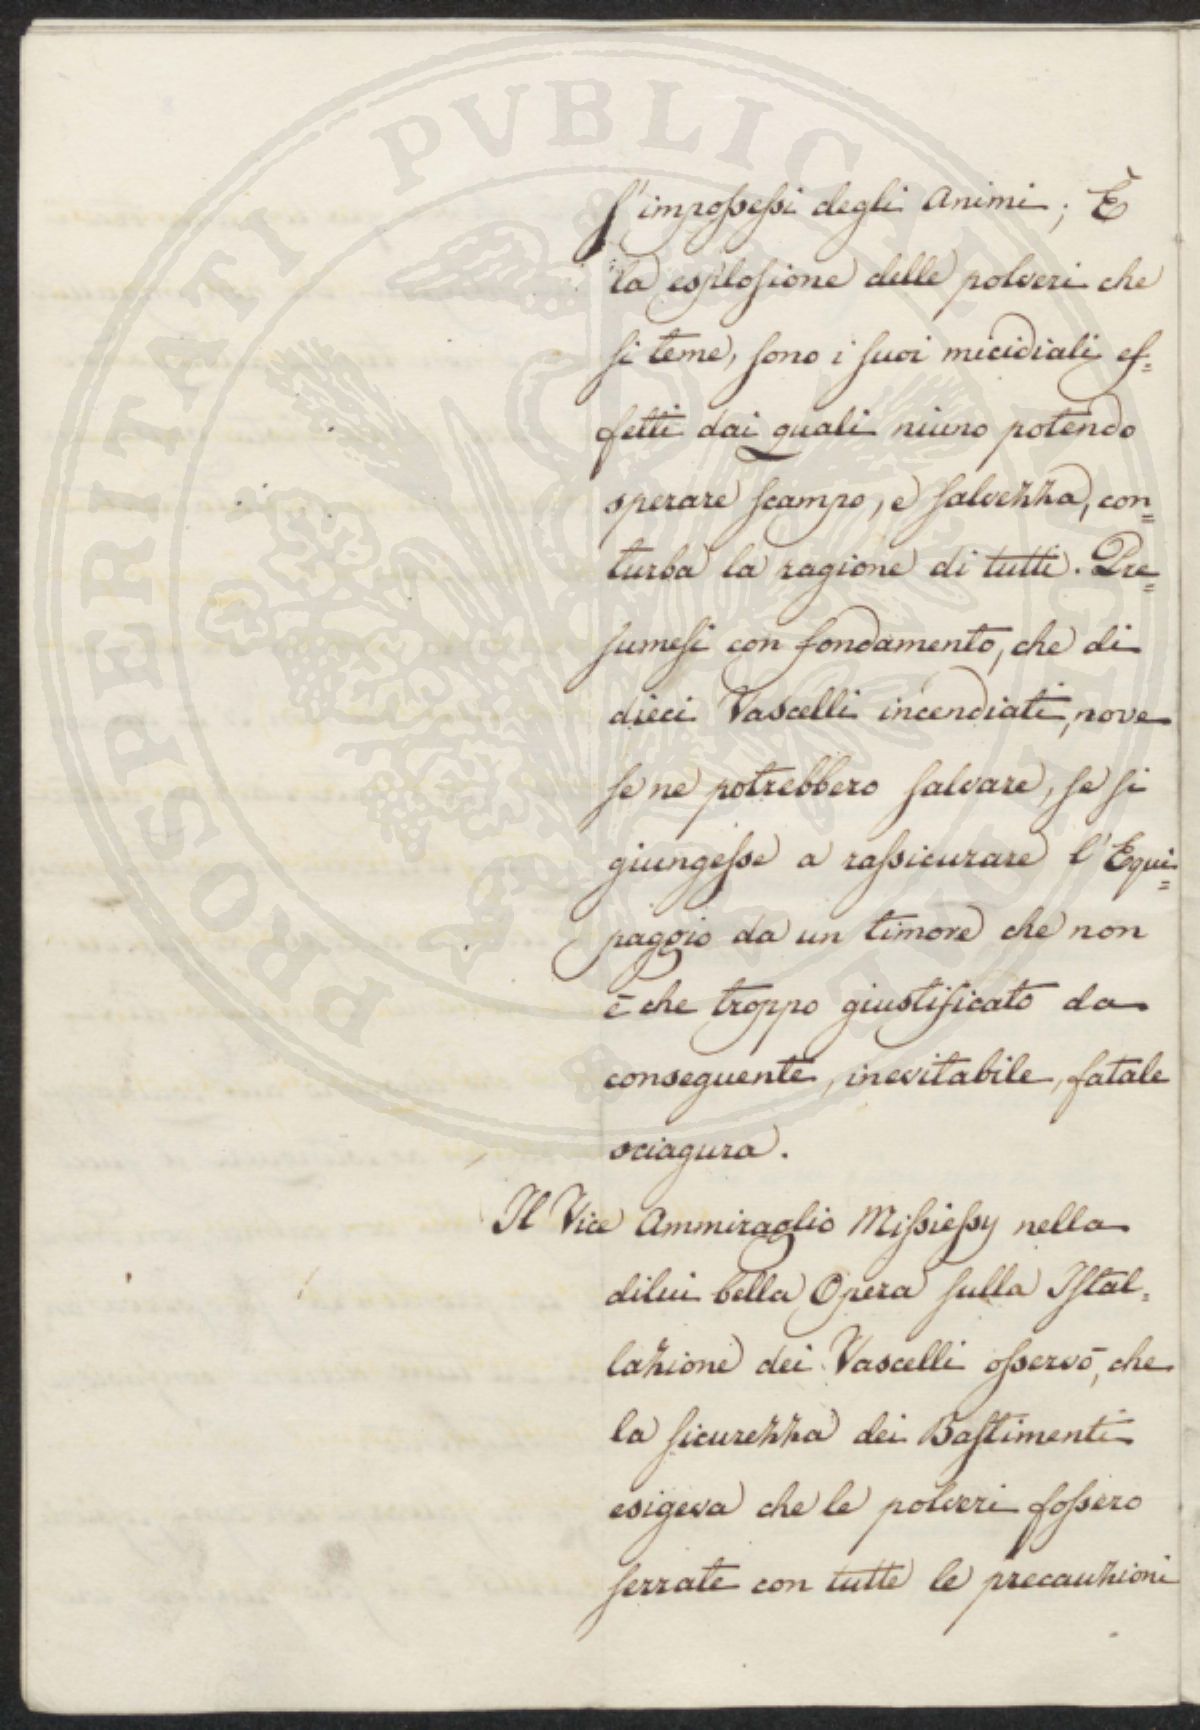 PROSPERITATI PVBLICAE AVGENDAE
s'impossessi degli Animi; È
la esplosione delle polveri che
si teme, sono i suoi micidiali ef=
fetti dai quali niuno potendo
sperare scampo, e salvezza, con=
turba la ragione di tutti. Pre=
sumesi con fondamento, che di
dieci Vascelli incendiati, nove
se ne potrebbero salvare, se si
giungesse a rassicurare l'Equi=
paggio da un timore che non
è che troppo giustificato da
conseguente, inevitabile, fatale
sciagura.
Il Vice Ammiraglio Missiessy nella
dilui bella Opera sulla Istal=
lazione dei Vascelli osservò, che
la sicurezza dei Bastimenti
esigeva che le polveri fossero
serrate con tutte le precauzioni